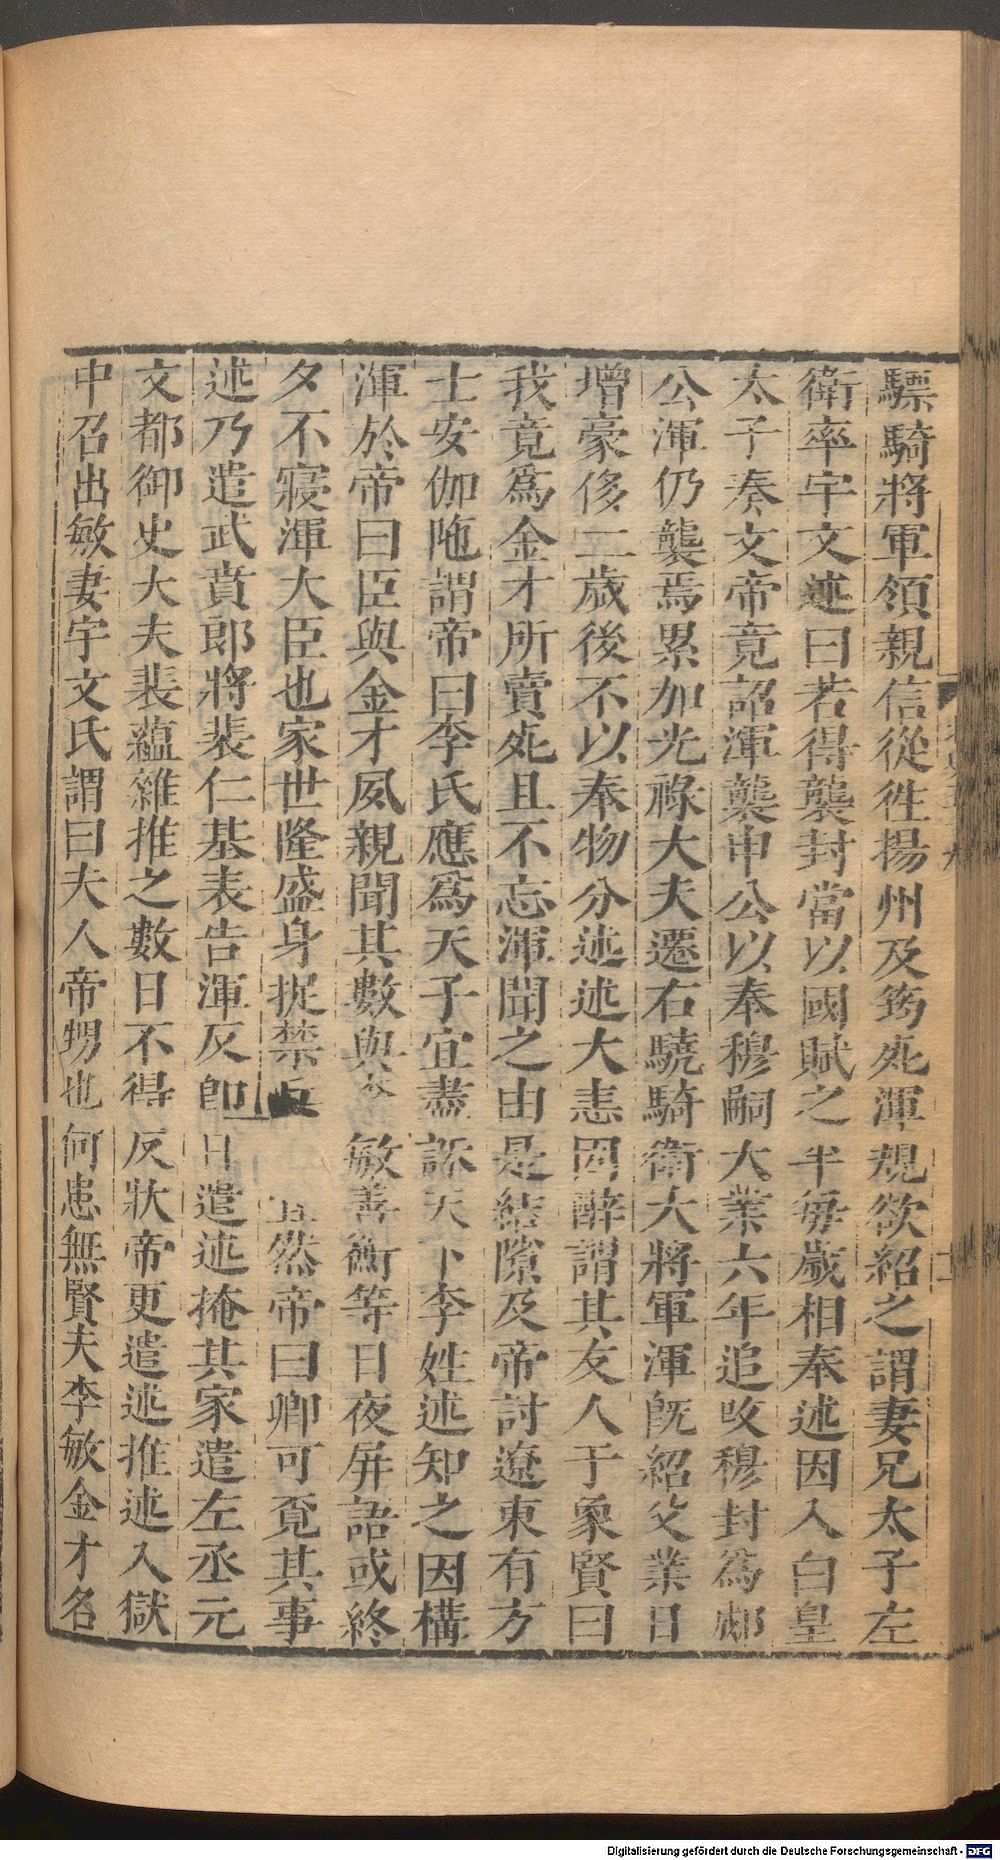 驃騎將軍領親信從徃揚州及筠死渾規欲紹之謂妻兄太子左
衛率宇文述曰若得襲封當以國賦之半毎歲相奉述因入白皇
太子奏文帝竟詔渾襲申公以奉穆嗣大業六年追攺穆封為郕
公渾仍襲焉累加光祿大夫遷右驍騎衛大將軍渾旣紹父業日
增豪侈二歲後不以奉物分述述大恚因醉謂其友人于象賢曰
我竟為金才所賣死且不忘渾聞之由是結隙及帝討遼東有方
士安伽陁謂帝曰李氏應為天子宜盡誅天下李姓述知之因構
渾於帝曰臣與金才夙親聞其數與 敏善衡等日夜屏語或終
夕不寝渾大臣也家世隆盛身捉禁 且然帝曰卿可覔其事
述乃遣武賁郎將裴仁基表告渾反卽日遣述掩其家遣左丞元
文都御史大夫裴蘊雜推之數日不得反狀帝更遣述推述入獄
中召出敏妻宇文氏謂曰夫人帝甥也何患無賢夫李敏金才名
Digitalisierung gefördert durch die Deutsche Forschungsgemeinschaft - DFG